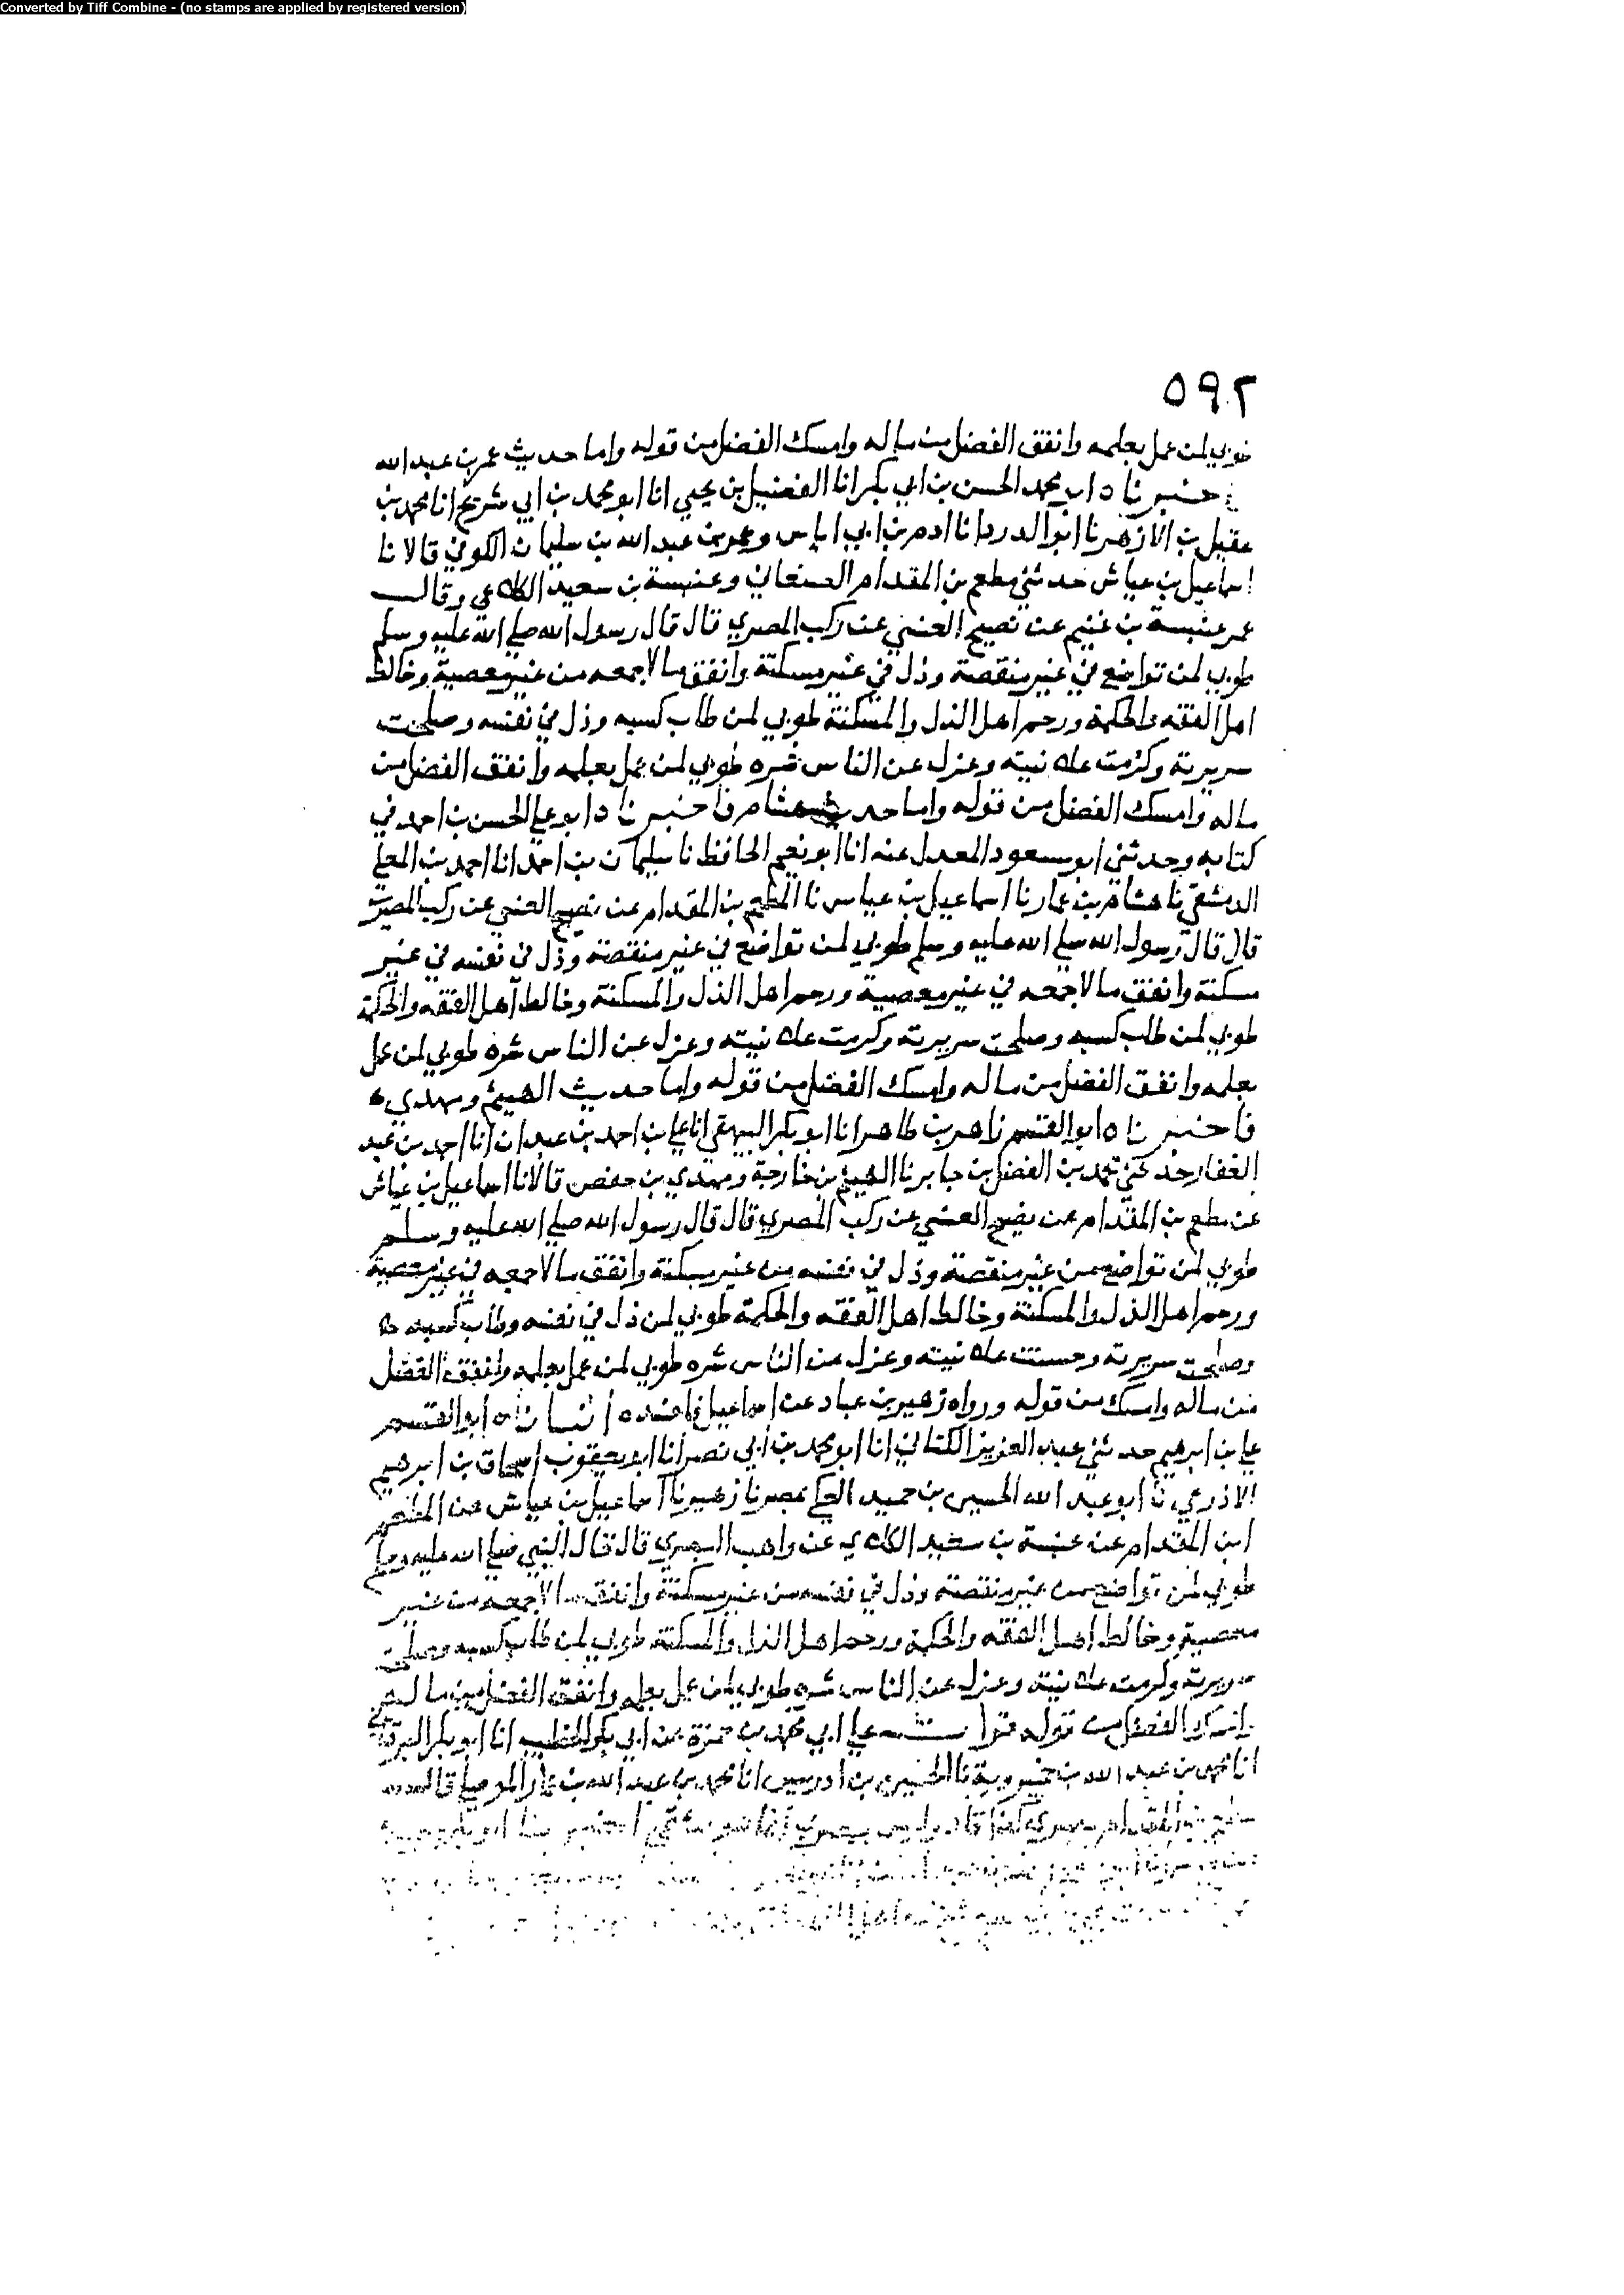 Converted by Tiff Combine - (no stamps are applied by registered version)
٥٩٢
طوبي لمن عمل بعلمه وانفق الفضل من ماله وامسك الفضل من قوله واما حديث عمر بن عبد الله
محمد الحسن بن ابي بكر انا الفضيل بن يحيي انا ابو محمد بن ابي شريح انا محمد بن
عقيل بن الازهر نا ابو الدردا نا ادم بن ابي اياس وعمر بن عبد الله بن سليمان الكوفي قالا نا
اسماعيل بن عياش حدثني مطعم بن المقدام الصنعاني وعنبسة بن سعيد الكلاعي وقال
عمر عنبسة بن غنيم عن نصيح العنسي عن ركب المصري قال قال رسول الله صلي الله عليه وسلم
طوبي لمن تواضع في غير منقصة وذل في غير مسكنة وانفق مالا جمعه من غير معصية وخالط
اهل الفقه والحكمة ورحم اهل الذل والمسكنة طوبي لمن طاب كسبه وذل في نفسه وصلحت
سريرته وكرمت علانيته وعزل عن الناس شره طوبي لمن عمل بعلمه وانفق الفضل من
ماله وامسك الفضل من قوله واما حديث هشام فاخبرناه ابو علي الحسن بن احمد في
كتابه وحدثني ابو مسعود المعدل عنه انا ابو نعيم الحافظ نا سليمان بن احمد انا احمد بن المعلي
الدمشقي نا هشام بن عمار نا اسماعيل بن عياس نا المطعم بن المقدام عن نصيح العنسي عن ركب المصري
قال قال رسول الله صلي الله عليه وسلم طوبي لمن تواضع في غير منقصة وذل في نفسه في غير
مسكنة وانفق مالا جمعه في غير معصية ورحم اهل الذل والمسكنة وخالط اهل الفقه والحكمة
طوبي لمن طاب كسبه وصلحت سريرته وكرمت علانيته وعزل عن الناس شره طوبي لمن عمل
بعلمه وانفق الفضل من ماله وامسك الفضل من قوله واما حديث الهيثم ومهدي
فاخبرناه ابو القسم زاهر بن طاهر انا ابو بكر البيهقي انا علي بن احمد بن عبدان انا احمد بن عبيد
الغفار حدثني محمد بن الفضل بن جابر نا الهيثم بن خارجة ومهدي بن حفص قالا نا اسماعيل بن عياش
عن مطعم بن المقدام عن نصيح العنسي عن ركب المصري قال قال رسول الله صلي الله عليه وسلم
طوبي لمن تواضع من غير منقصة وذل في نفسه من غير مسكنة وانفق مالا جمعه في غير معصية
ورحم اهل الذل والمسكنة وخالط اهل الفقه والحكمة طوبي لمن ذل في نفسه وطاب كسبه
وصلحت سريرته وحسنت علانيته وعزل عن الناس شره طوبي لمن عمل بعلمه وانفق الفضل
من ماله وامسك من قوله ورواه زهير بن عباد عن اسماعيل انباناه ابو القسم
علي بن ابرهيم حدثني عبد العزيز الكتاني انا ابو محمد بن ابي نصر انا ابو يعقوب اسحاق بن ابرهيم
الاذرعي نا ابو عبد الله الحسين بن حميد العكي بمصر نا زهير نا اسماعيل بن عياش عن المطعم
ابن المقدام عن عنبسة بن سعيد الكلاعي عن واهب البصري قال قال النبي صلي الله عليه وسلم
طوبي لمن تواضع من غير منقصة وذل في نفسه من غير مسكنة وانفق مالا جمعه من غير
معصية وخالط اهل الفقه والحكمة ورحم اهل الذل والمسكنة طوبي لمن طاب كسبه وصلحت
سريرته وكرمت علانيته وعزل عن الناس شره طوبي لمن عمل بعلمه وانفق الفضل من ماله
وامسك الفضل من قوله قرات علي ابي محمد بن حمزة عن ابي بكر الخطيب انا ابو بكر البرقاني
انا محمد بن عبد الله بن خميرويه نا الحسين بن ادريس انا محمد بن عبد الله بن عمار الموصلي قال